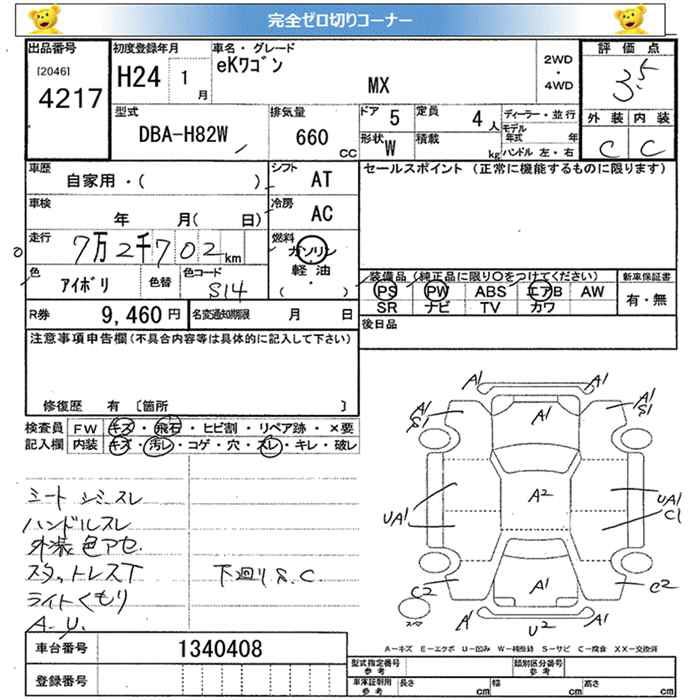 完全ゼロ切りコーナー
出品番号 [2046] 4217
初度登録年月 H24 1月
車名・グレード eKワゴン MX
2WD・4WD
評価点 3.5
型式 DBA-H82W
排気量 660 CC
ドア 5
定員 4人
形状 W
積載 kg
ディーラー・並行
モデル年式 年
ハンドル 左・右
外装 内装
C C
車歴 自家用・( )
シフト AT
セールスポイント (正常に機能するものに限ります)
車検 年 月( 日)
冷房 AC
走行 7万2千702km
燃料 ガソリン 軽油 ・ ( )
色 アイボリ 色替 色コード S14
装備品 (純正品に限り○をつけてください)
新車保証書
PS PW ABS エアB AW
有・無
SR ナビ TV カワ
R券 9,460円 名変通知期限 月 日
後日品
注意事項申告欄(不具合内容等は具体的に記入して下さい)
修復歴 有 〔箇所 〕
検査員 FW キズ・飛石・ヒビ割・リペア跡・×要
記入欄 内装 キズ・汚レ・コゲ・穴・スレ・キレ・破レ
シート シミ スレ
ハンドルスレ
外装 色アセ.
スタットレスT 下廻り S.C
ライトくもり
A-U.
A1 A1
A1 S1 A1 A1 S1
UA1 A2 UA1 C1
C2 A1 C2
スペア A1 U2 A1
A-キズ E-エクボ U-凹み W-補修跡 S-サビ C-腐食 XX-交換済
車台番号 1340408
型式指定番号 参考 類別区分番号 参考
登録番号
車庫証明用 参考 長さ cm 幅 cm 高さ cm